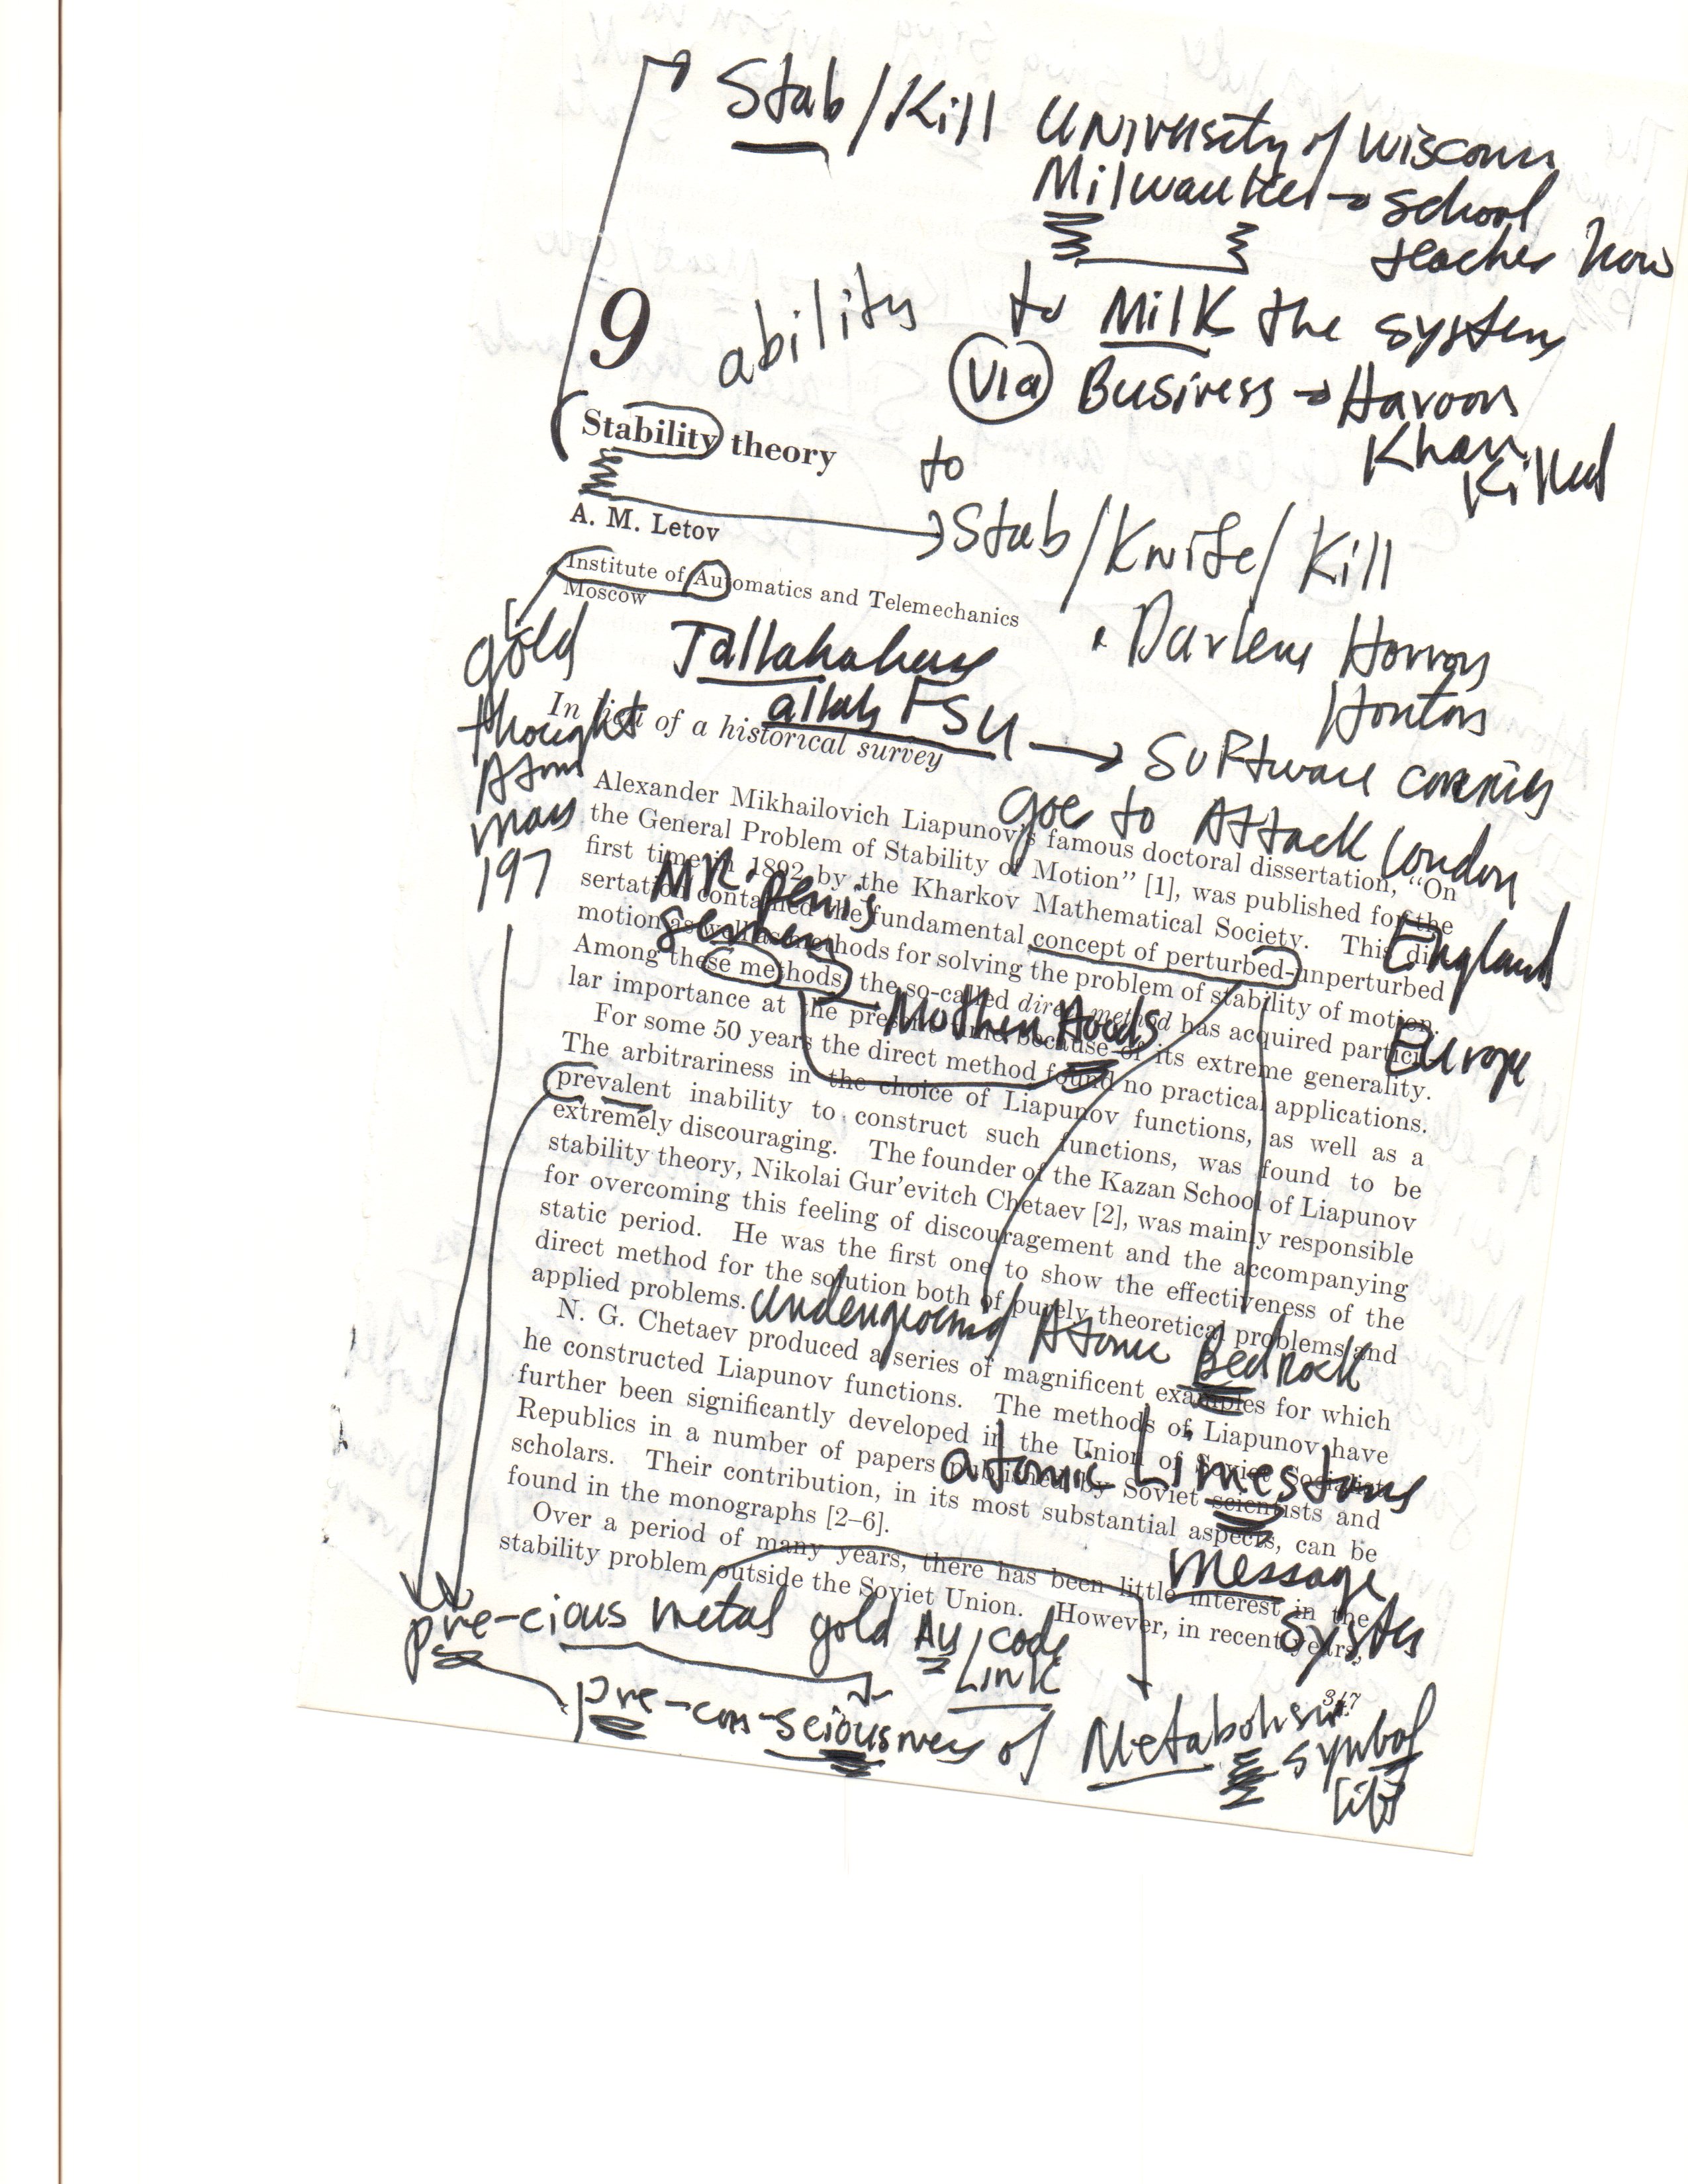 Stab/Kill University of Wisconsin
Milwaukee → school
teacher how
ability to Milk the system
9
via Business → Haroon
Khan
Killed
Stability theory
to
Stab/Knife/Kill
A. M. Letov
Institute of Automatics and Telemechanics
Moscow
Darlene Horrors
Hortons
gold
thought
Atom
mass
197
allah FSU → Software
goe to Attack London
England
Europe
In lieu of a historical survey
Alexander Mikhailovich Liapunov's famous doctoral dissertation, "On
the General Problem of Stability of Motion" [1], was published for the
first time in 1892 by the Kharkov Mathematical Society. This dis-
sertation contained the fundamental concept of perturbed-unperturbed
motion as well as methods for solving the problem of stability of motion.
Among these methods, the so-called direct method has acquired particu-
lar importance at the present time because of its extreme generality.
MR. penis
Mother Hoods
For some 50 years the direct method found no practical applications.
The arbitrariness in the choice of Liapunov functions, as well as a
prevalent inability to construct such functions, was found to be
extremely discouraging. The founder of the Kazan School of Liapunov
stability theory, Nikolai Gur'evitch Chetaev [2], was mainly responsible
for overcoming this feeling of discouragement and the accompanying
static period. He was the first one to show the effectiveness of the
direct method for the solution both of purely theoretical problems and
applied problems.
Underground Atomic Bedrock
N. G. Chetaev produced a series of magnificent examples for which
he constructed Liapunov functions. The methods of Liapunov have
further been significantly developed in the Union of Soviet Socialist
Republics in a number of papers published by Soviet scientists and
scholars. Their contribution, in its most substantial aspects, can be
found in the monographs [2–6].
atomic Limestone
Message
System
Over a period of many years, there has been little interest in the
stability problem outside the Soviet Union. However, in recent years,
pre-cious metal gold Au code
Link
347
pre-con-sciousness of Metabolism
symbol